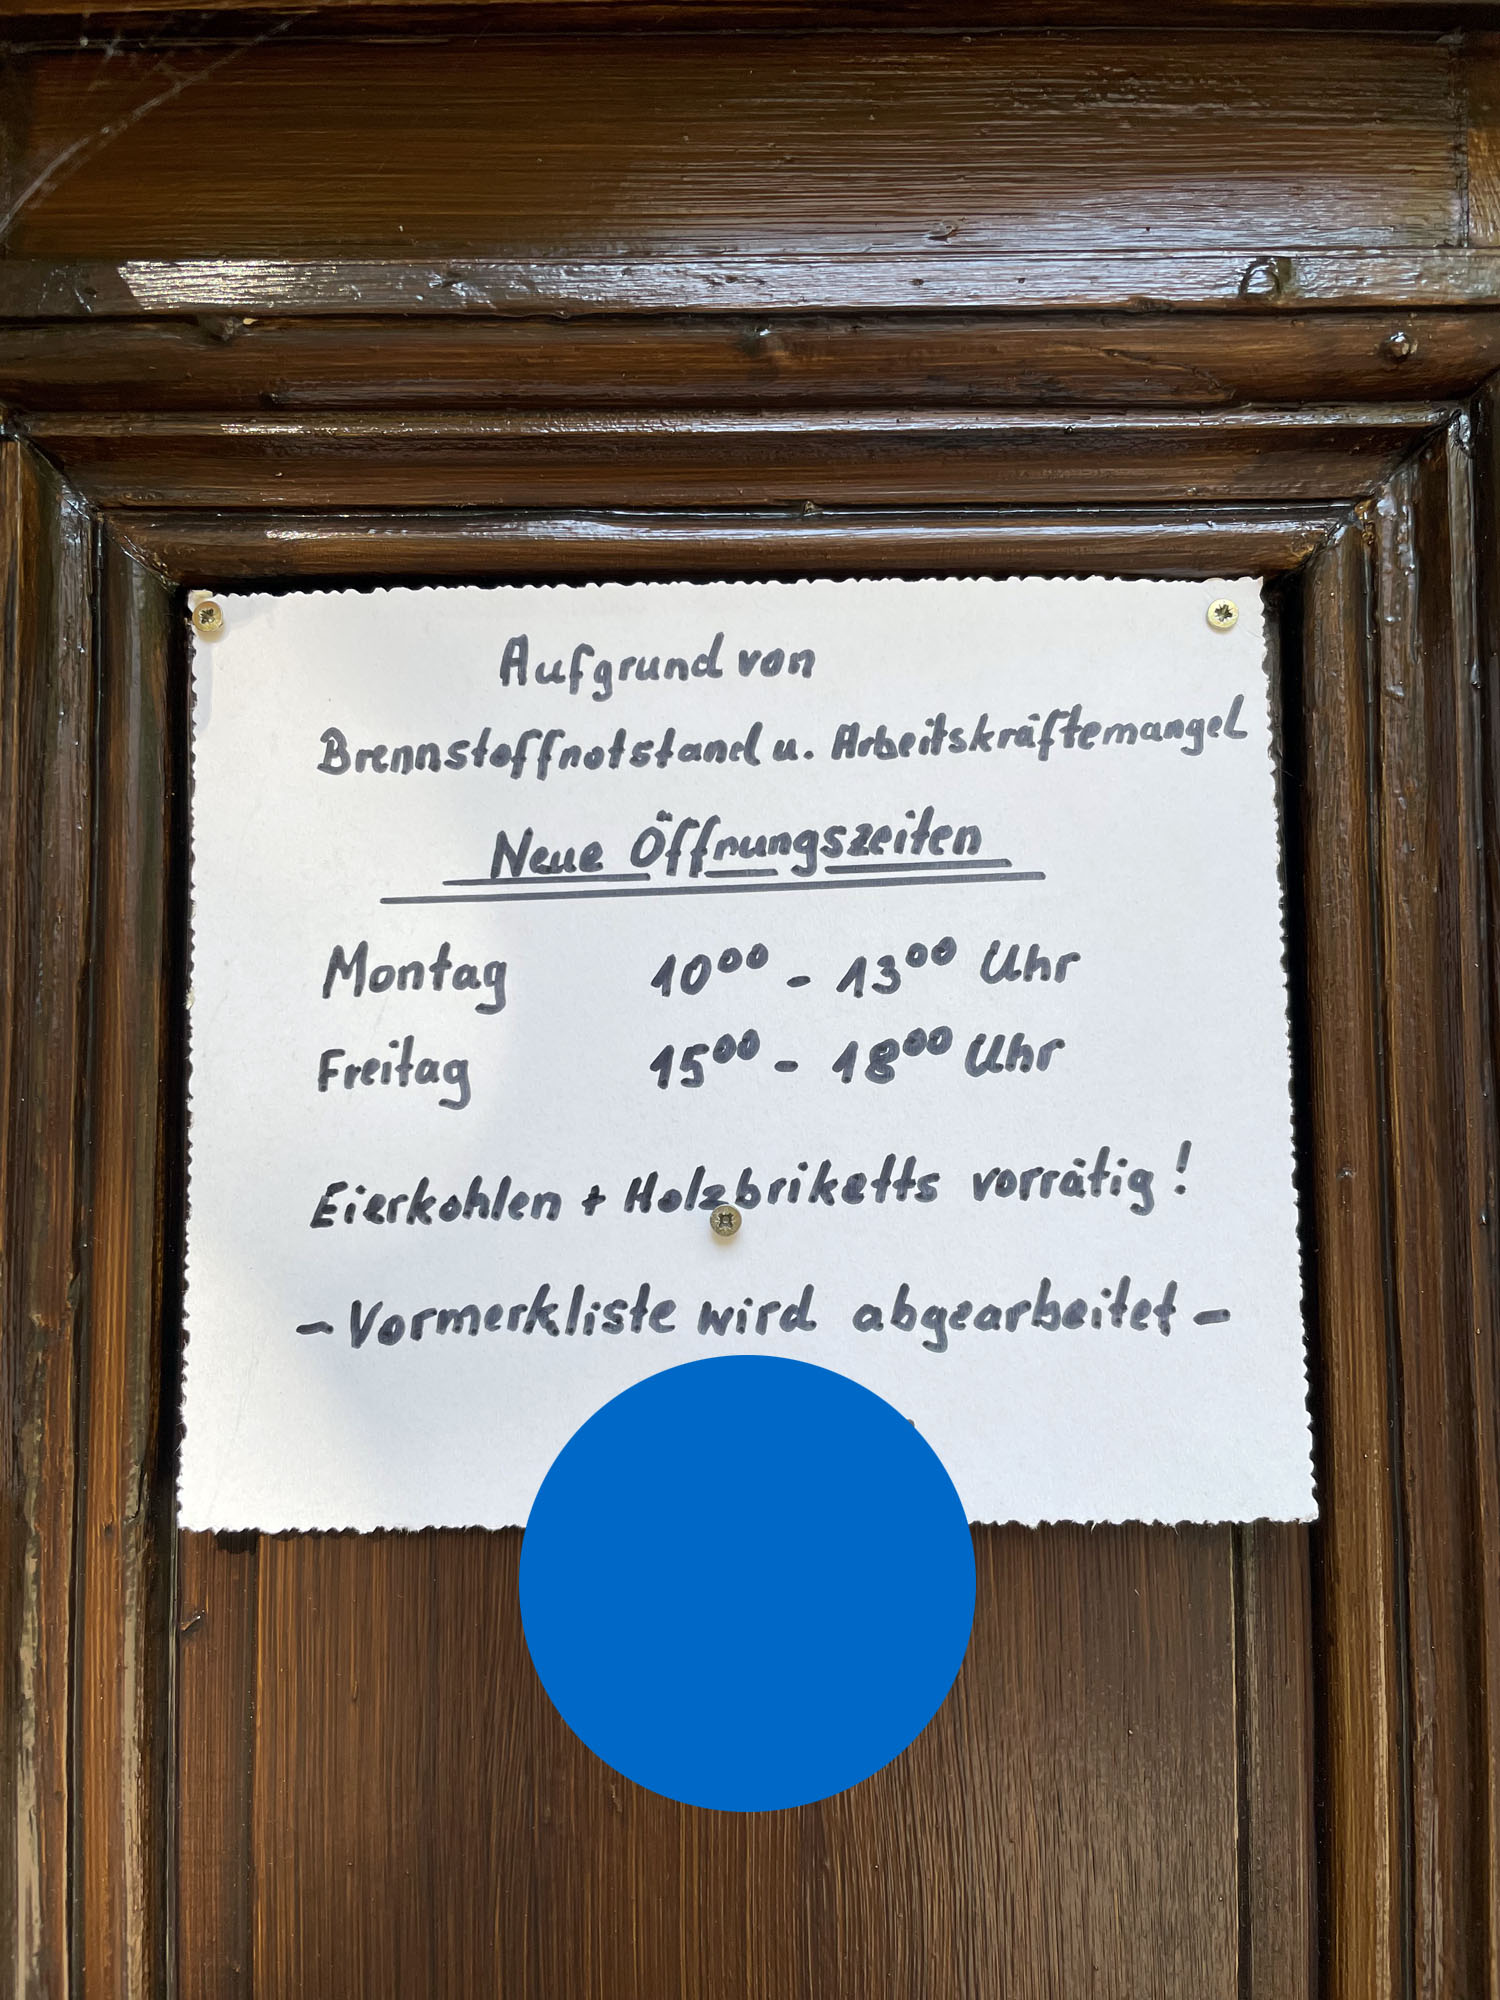 Aufgrund von
Brennstoffnotstand u. Arbeitskräftemangel
Neue Öffnungszeiten
Montag 10⁰⁰ - 13⁰⁰ Uhr
Freitag 15⁰⁰ - 18⁰⁰ Uhr
Eierkohlen + Holzbriketts vorrätig!
- Vormerkliste wird abgearbeitet -